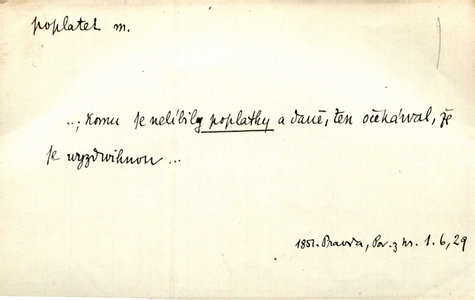 poplatek m.
..; komu se nelíbily poplatky a daně, ten očekáwal, že
se wyzdwihnou ...
1851. Pravda, Pov. z kr. 1. 6, 29